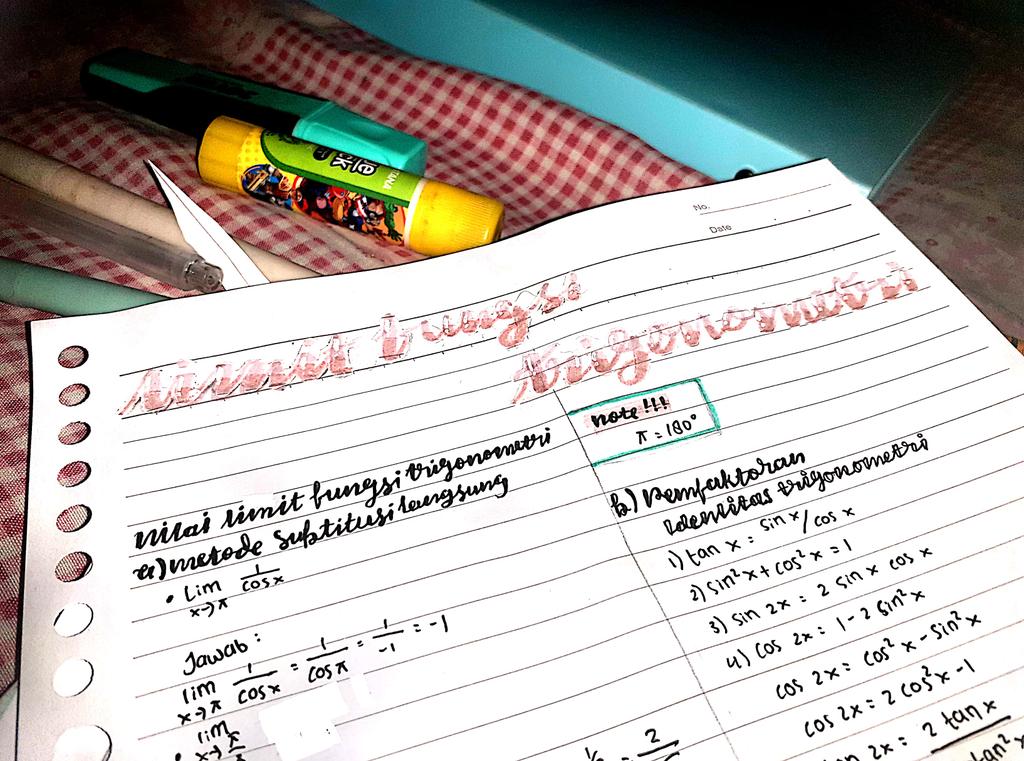 No.
Date
limit fungsi trigonometri
note !!!
π = 180°
nilai limit fungsi trigonometri
a) metode substitusi langsung
• Lim x→π 1/cos x
Jawab :
lim x→π 1/cos x = 1/cos π = 1/-1 = -1
• lim x→π
= 2
b) Pemfaktoran
identitas trigonometri
1) tan x = sin x / cos x
2) sin²x + cos²x = 1
3) sin 2x = 2 sin x cos x
4) cos 2x = 1 - 2 sin²x
cos 2x = cos²x - sin²x
cos 2x = 2 cos²x - 1
2x = 2 tan x
tan²x